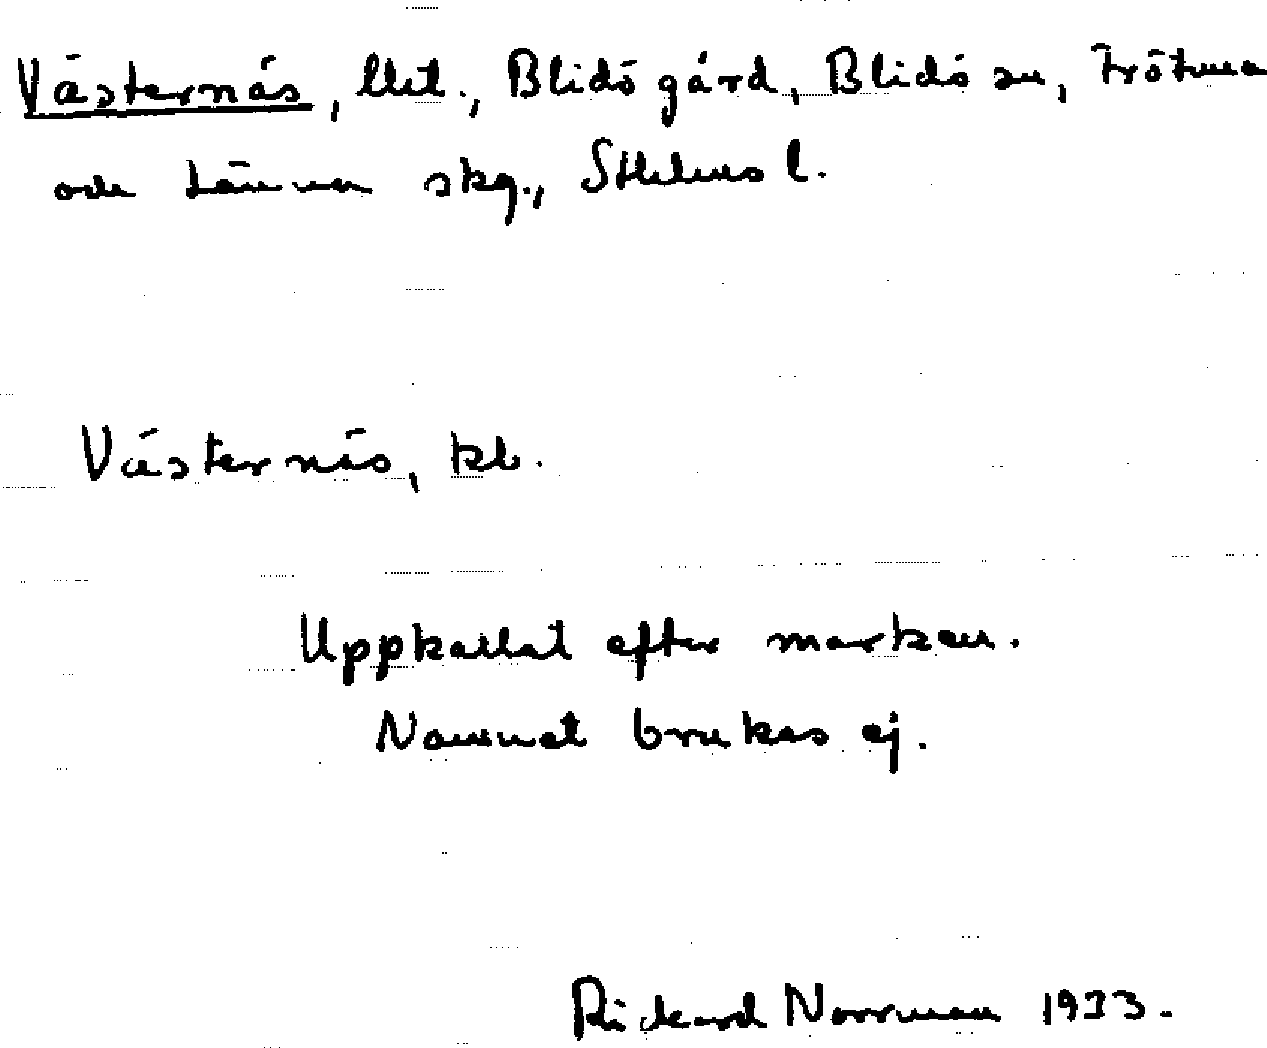 Västernäs, lht., Blidö gård, Blidö sn, Frötuna
och Länna skg., Sthlms l.
Västernäs, kb.
Uppkallat efter marken.
Namnet brukas ej.
Rickard Norrman 1933.